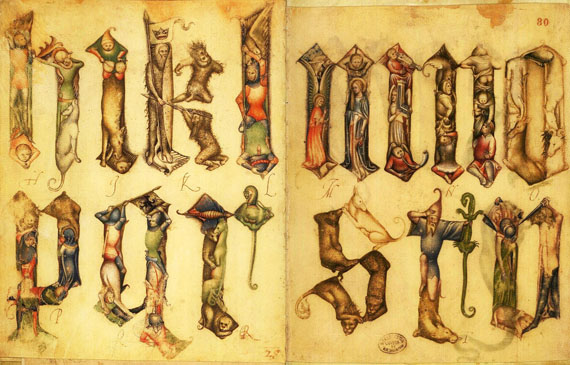 h i k l
H K L
p q r
P R
80
m n o
M N O
s t v